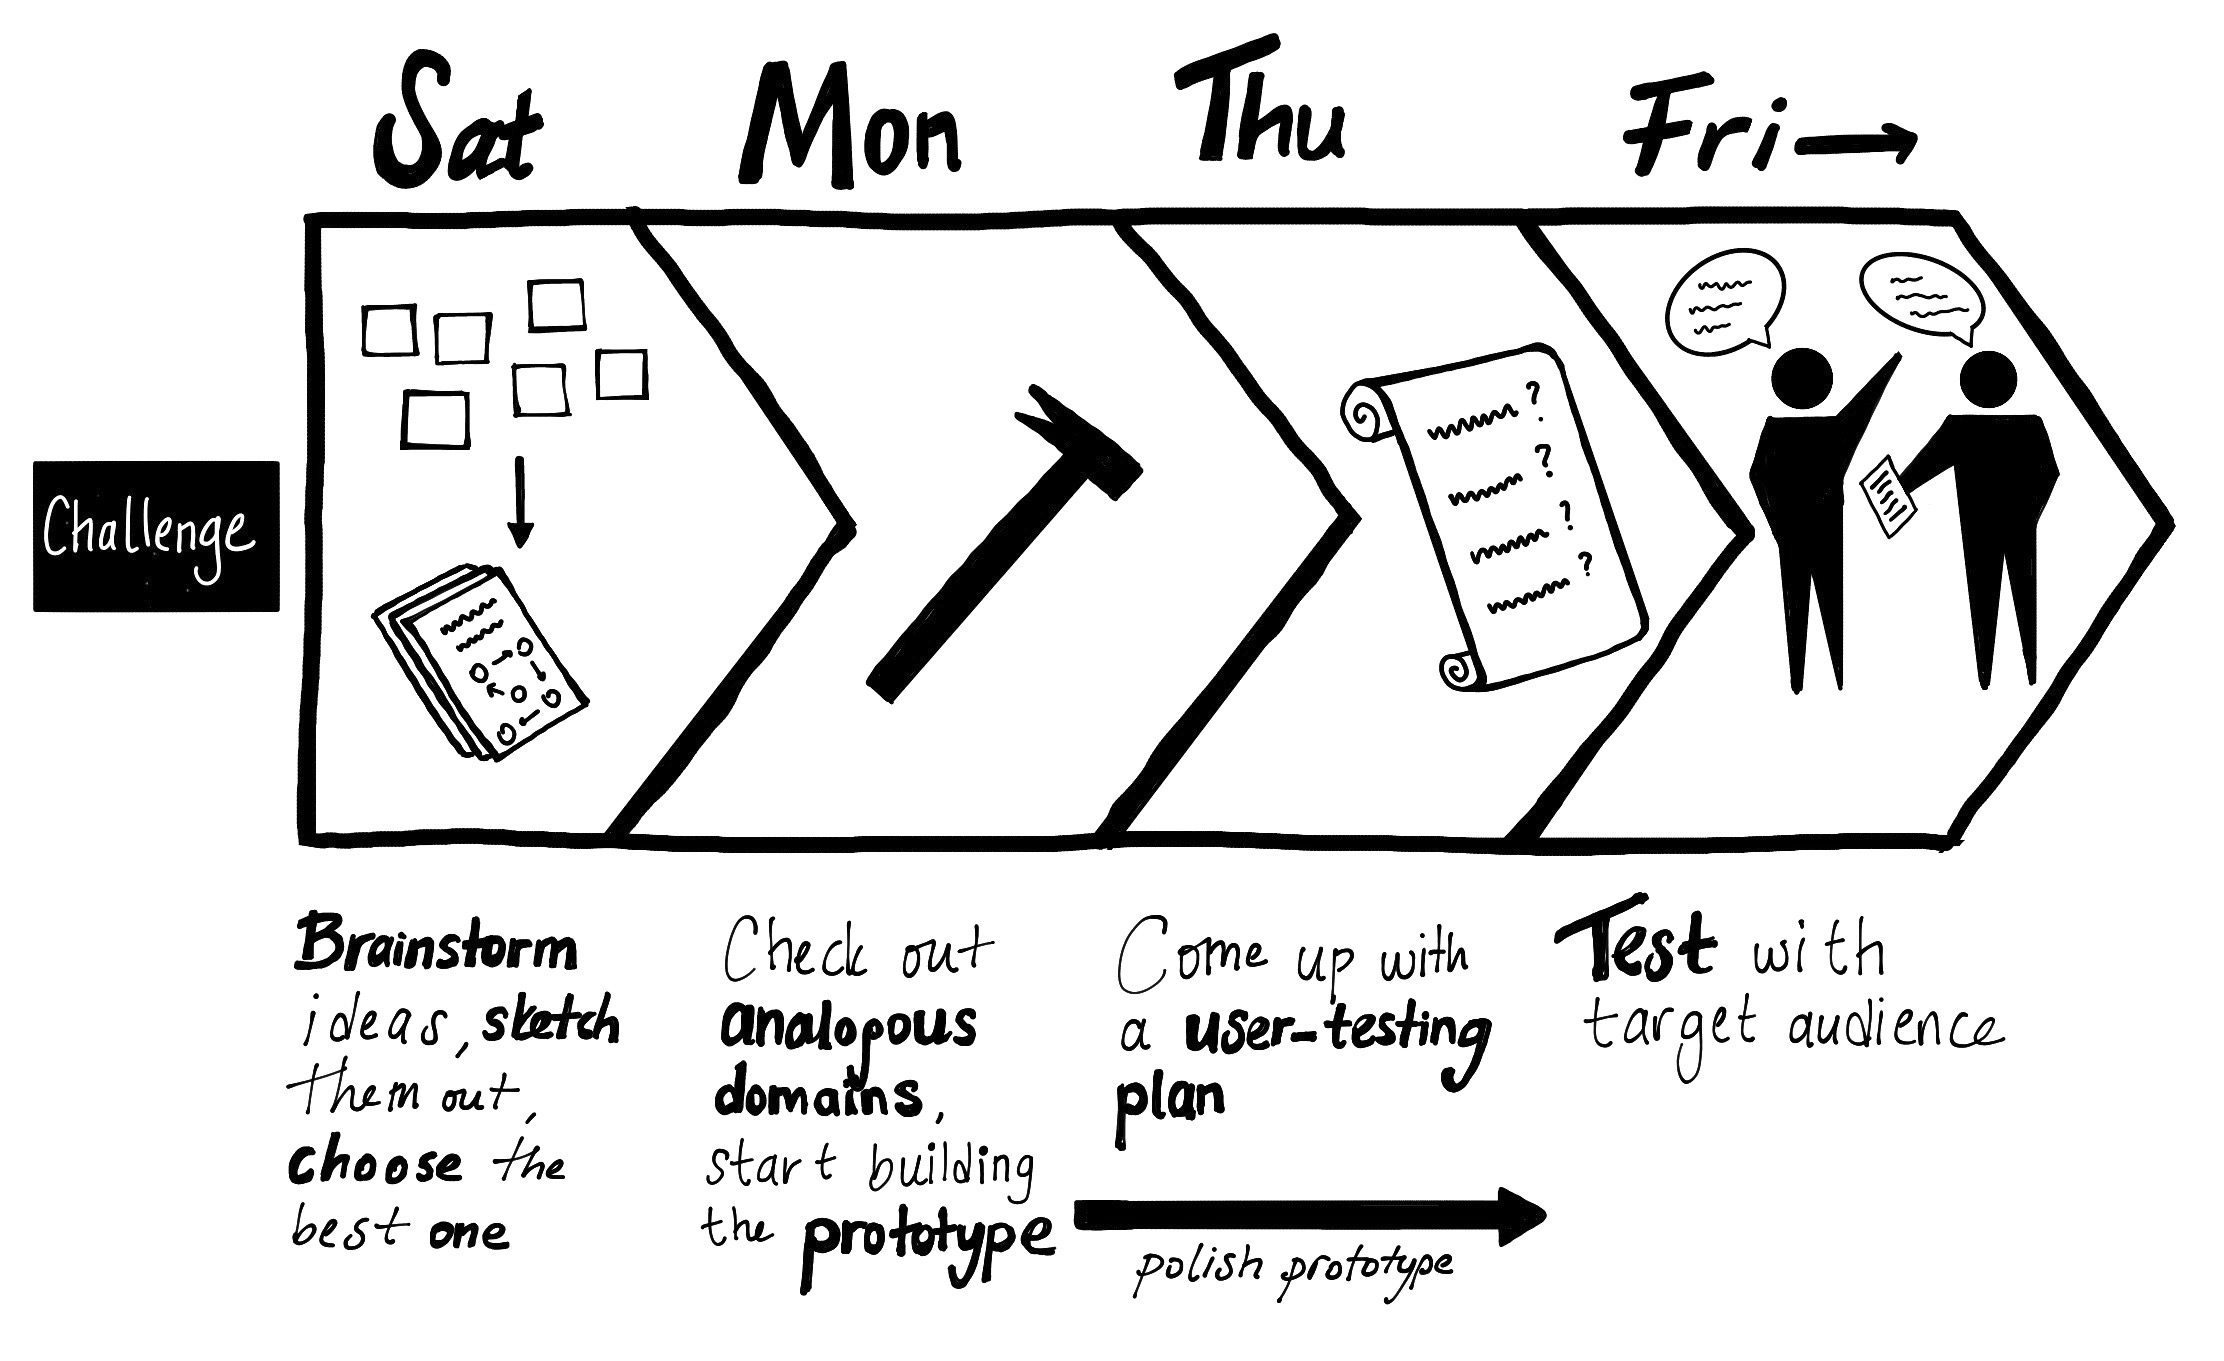 Sat Mon Thu Fri →
Challenge
?
?
?
?
Brainstorm
ideas, sketch
them out,
choose the
best one
Check out
analogous
domains,
start building
the prototype
Come up with
a user-testing
plan
polish prototype
Test with
target audience